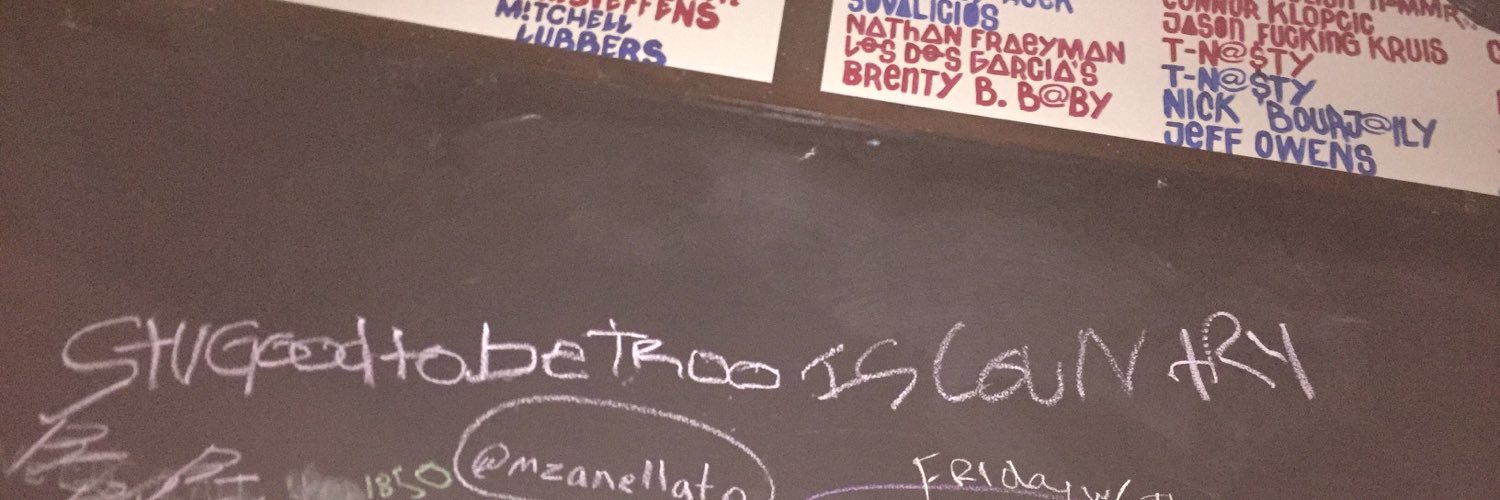 STEFFENS
MITCHELL
LUBBERS
SUVALICIOS
NATHAN FRAEYMAN
LOS DOS GARCIA'S
BRENTY B. B@BY
CONNOR KLOPCIC
JASON FUCKING KRUIS
T-N@$TY
T-N@$TY
NICK BOURJ@ILY
JEFF OWENS
STUGoodtobeTROO IS COUNTRY
1850
@mzanellato
FRIday